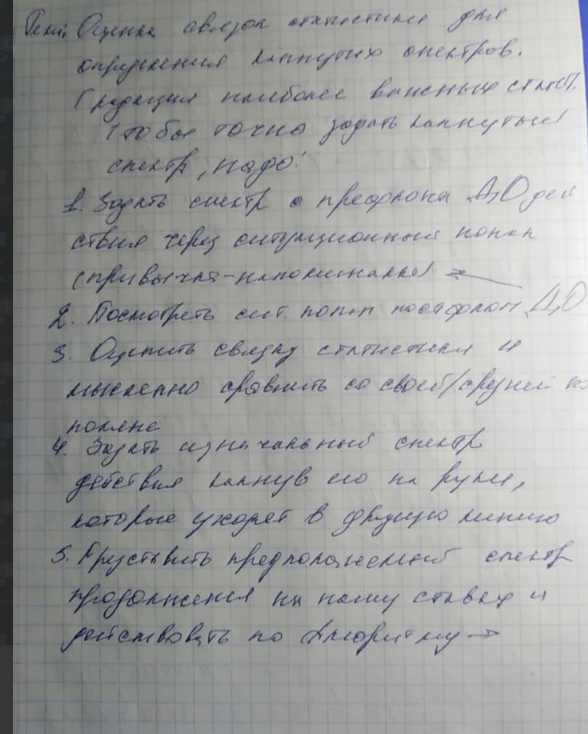 Тема: Оценка связок статистики для
определения каппутых спектров.
Градация наиболее важных статов.
Чтобы точно задать каппутый
спектр, надо:
1. Задать спектр с префлопа ДО дей
ствия через ситуационный попап
(привычка-напоминалка)
2. Посмотреть сит. попап постфлоп ДО
3. Оценить связку статистики и
мысленно сравнить со своей/средней
попапе
4. Задать изначальный спектр
действия каппув его на руки,
которые уходят в другую линию
5. Представить предположенный спектр
продолжения на нашу ставку и
действовать по алгоритму →